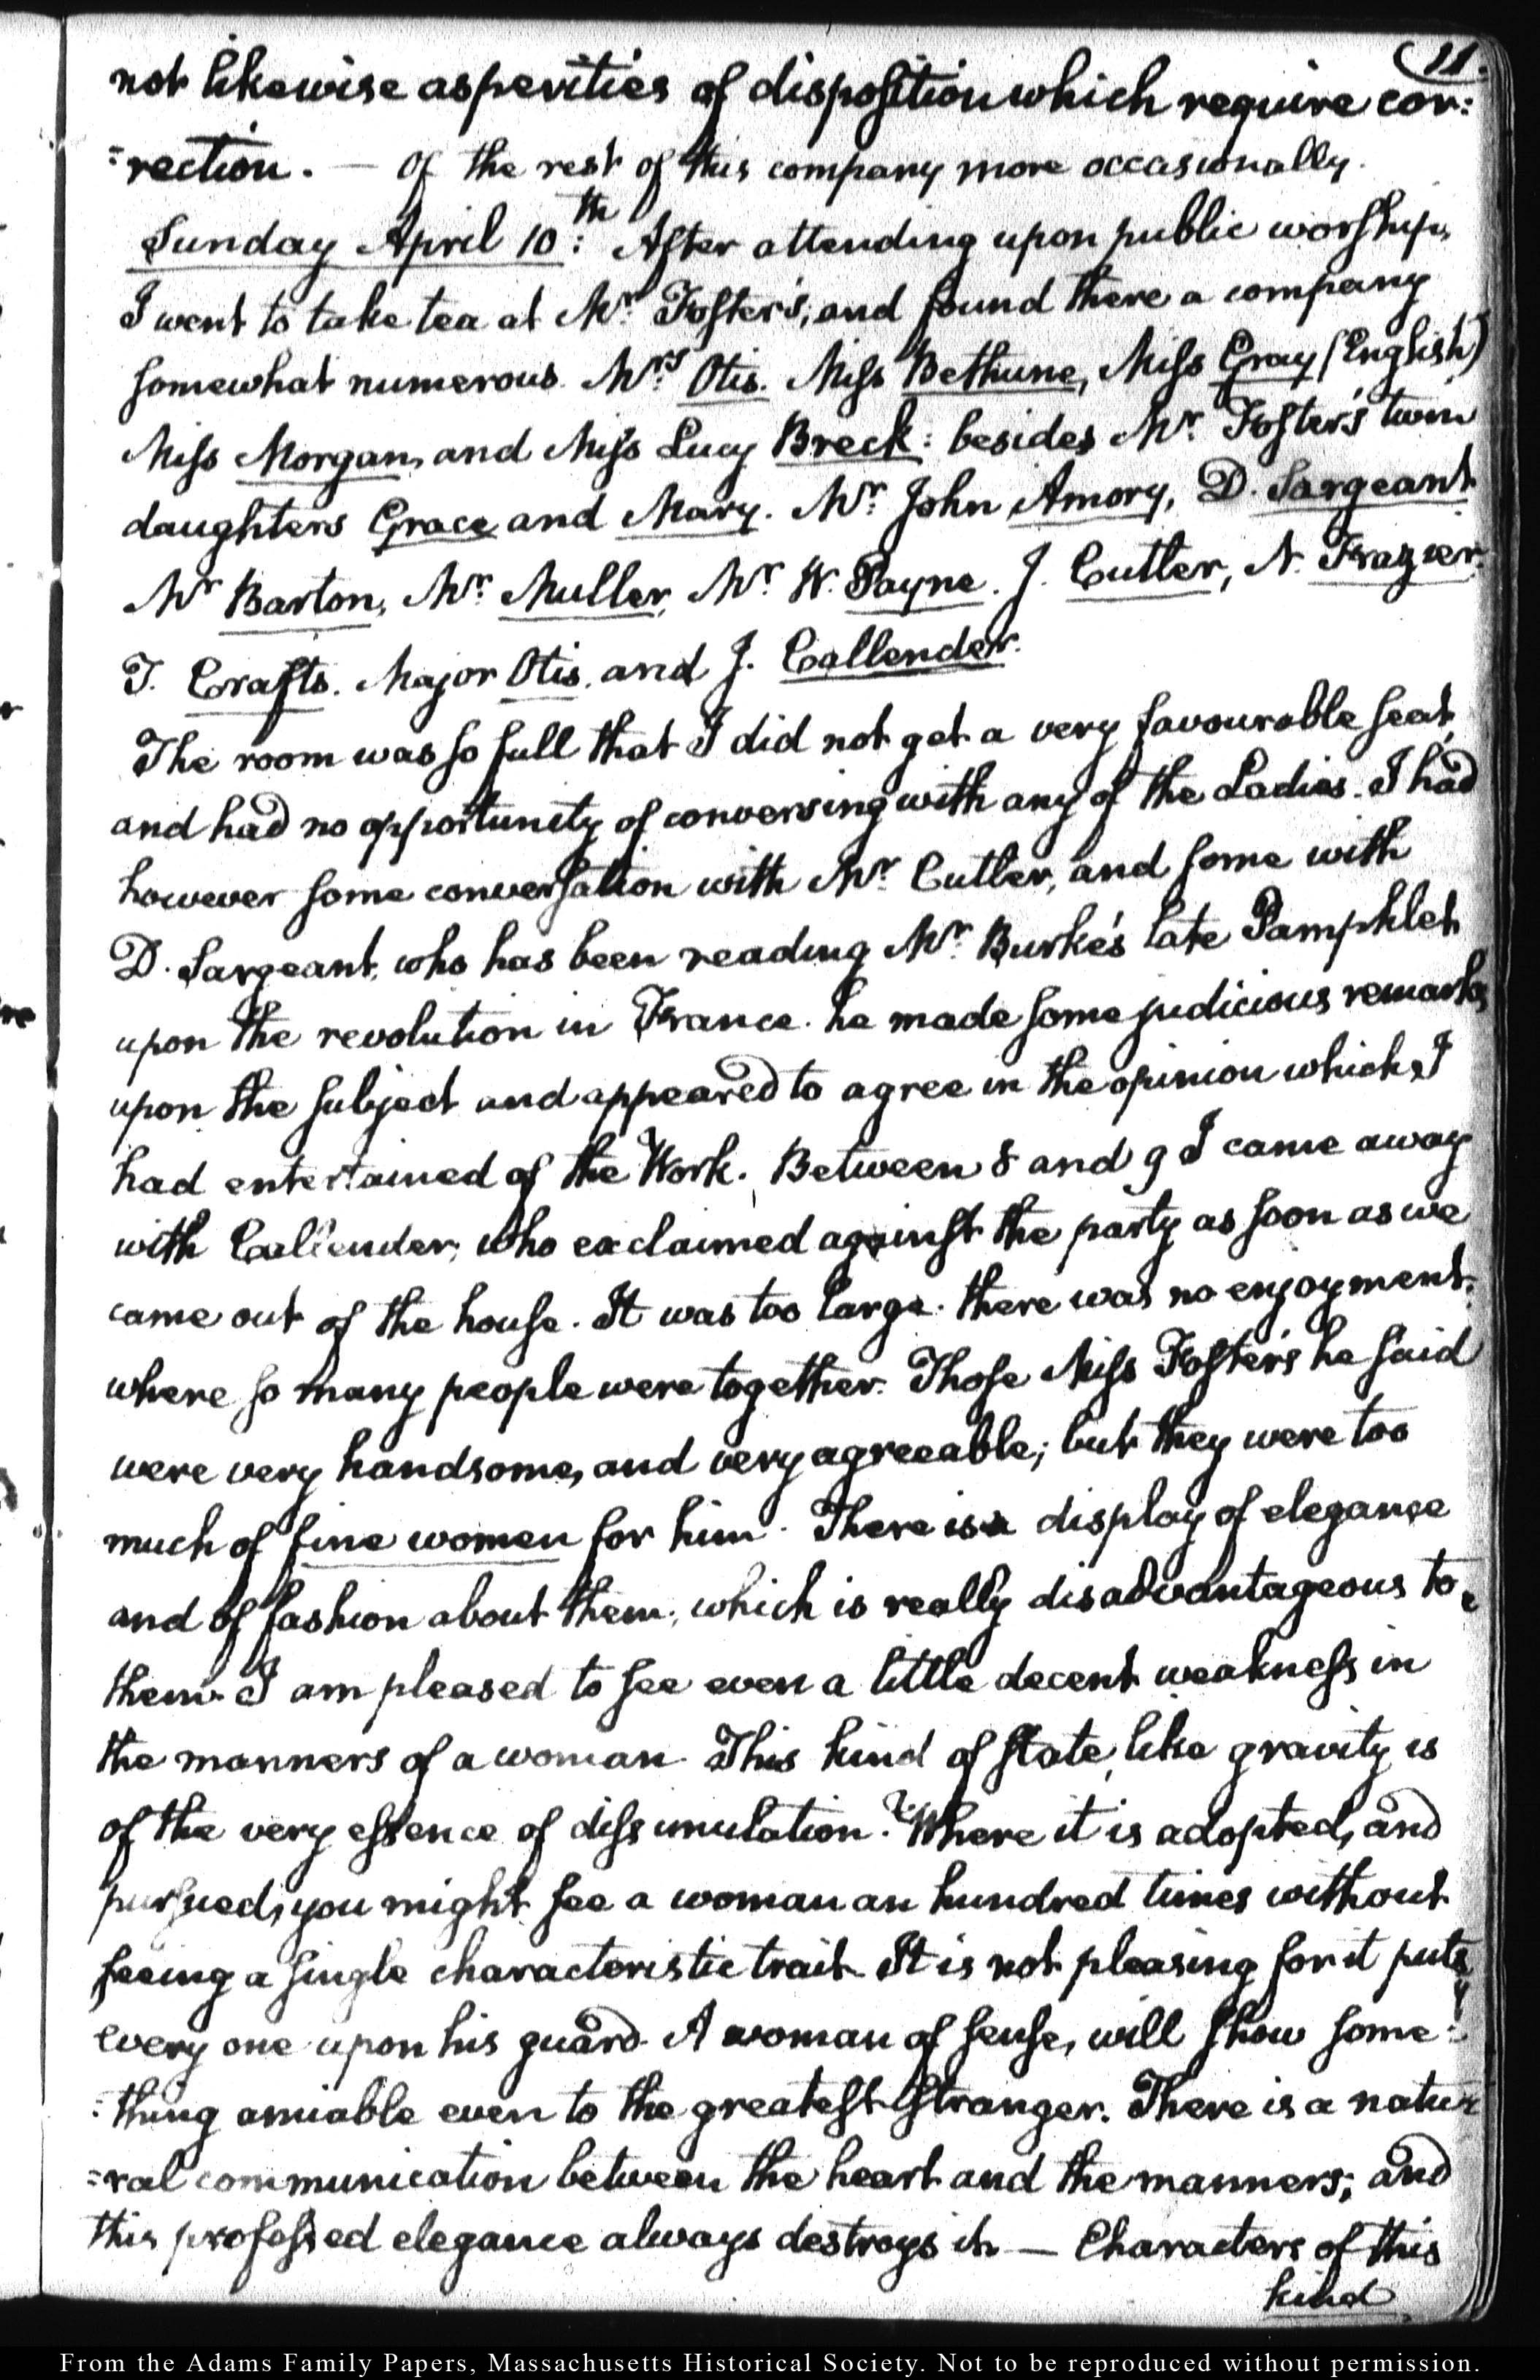 11.
not likewise asperities of disposition which require cor:
:rection. — Of the rest of this company more occasionally.
Sunday April 10:th After attending upon public worship,
I went to take tea at Mr: Foster's, and found there a company
somewhat numerous. Mrs: Otis. Miss Bethune, Miss Gray (English)
Miss Morgan, and Miss Lucy Breck: besides Mr: Foster's twin
daughters Grace and Mary. Mr: John Amory, D. Sargeant
Mr Barton, Mr: Muller, Mr W. Payne. J. Cutler, N. Frazier.
T. Crafts. Major Otis, and J. Callender.
The room was so full that I did not get a very favourable seat,
and had no opportunity of conversing with any of the Ladies. I had
however some conversation with Mr: Cutler, and some with
D. Sargeant, who has been reading Mr: Burke's late Pamphlet
upon the revolution in France. he made some judicious remarks
upon the subject and appeared to agree in the opinion which I
had entertained of the Work. Between 8 and 9 I came away
with Callender, who exclaimed against the party as soon as we
came out of the house. It was too large. there was no enjoyment.
where so many people were together. Those Miss Foster's he said
were very handsome, and very agreeable; but they were too
much of fine women for him. There is a display of elegance
and of fashion about them, which is really disadvantageous to
them. I am pleased to see even a little decent weakness in
the manners of a woman. This kind of state, like gravity is
of the very essence of dissimulation. Where it is adopted, and
pursued, you might see a woman an hundred times without
seeing a single characteristic trait. It is not pleasing for it puts
every one upon his guard. A woman of sense, will show some:
:thing amiable even to the greatest stranger. There is a natu
:ral communication between the heart and the manners; and
this professed elegance always destroys it — Characters of this
kind
From the Adams Family Papers, Massachusetts Historical Society. Not to be reproduced without permission.